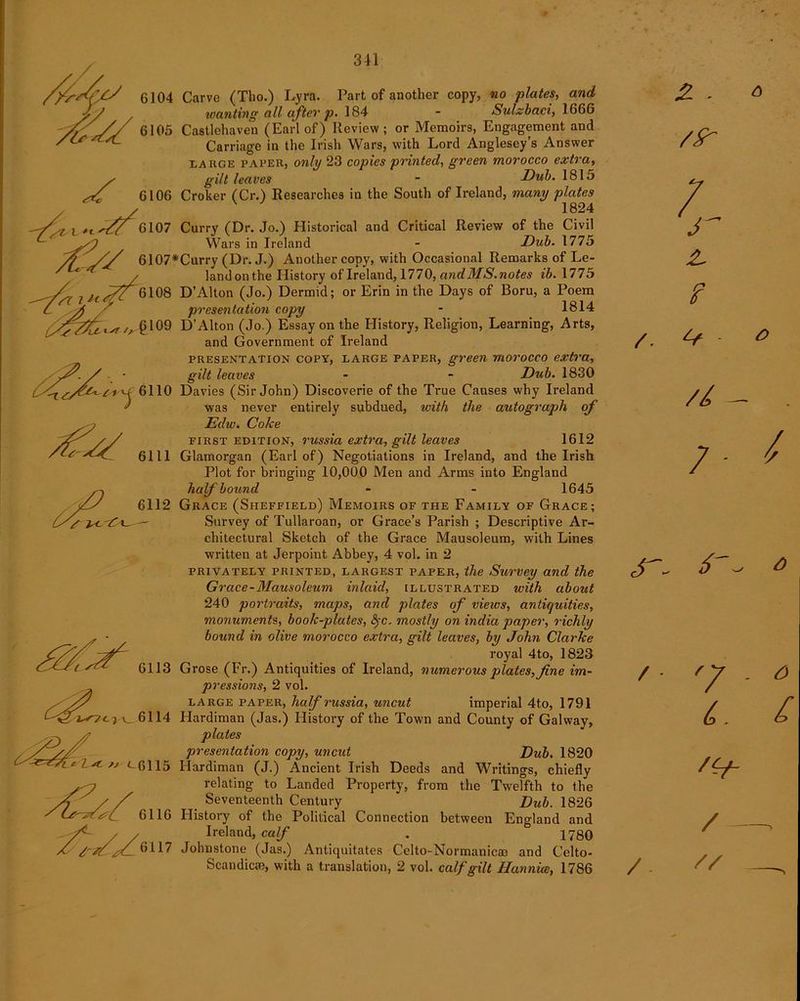 341
6104 Carve (Tho.) Lyra. Part of another copy, no plates, and
wanting all after p. 184 - Sulzbaci, 1666
6105 Castlehaven (Earl of) Review; or Memoirs, Engagement and
Carriage in the Irish Wars, with Lord Anglesey's Answer
LARGE PAPER, only 23 copies printed, green morocco extra,
gilt leaves - Dub. 1815
6106 Croker (Cr.) Researches in the South of Ireland, many plates
1824
6107 Curry (Dr. Jo.) Historical and Critical Review of the Civil
Wars in Ireland - Dub. 1775
6107*Curry (Dr. J.) Another copy, with Occasional Remarks of Le-
land on the History of Ireland, 1770, and MS. notes ib. 1775
6108 D'Alton (Jo.) Dermid; or Erin in the Days of Boru, a Poem
presentation copy - 1814
6109 D'Alton (Jo.) Essay on the History, Religion, Learning, Arts,
and Government of Ireland
PRESENTATION COPY, LARGE PAPER, green morocco extra,
gilt leaves - - Dub. 1830
6110 Davies (Sir John) Discoverie of the True Causes why Ireland
was never entirely subdued, with the autograph of
Edw. Coke
FIRST EDITION, russia extra, gilt leaves 1612
6111 Glamorgan (Earl of) Negotiations in Ireland, and the Irish
Plot for bringing 10,000 Men and Arms into England
half bound - - 1645
6112 GRACE (SHEFFIELD) MEMOIRS OF THE FAMILY OF GRACE;
Survey of Tullaroan, or Grace's Parish; Descriptive Ar-
chitectural Sketch of the Grace Mausoleum, with Lines
written at Jerpoint Abbey, 4 vol. in 2
PRIVATELY PRINTED, LARGEST PAPER, the Survey and the
Grace-Mausoleum inlaid, ILLUSTRATED with about
240 portraits, maps, and plates of views, antiquities,
monuments, book-plates, &c. mostly on india paper, richly
bound in olive morocco extra, gilt leaves, by John Clarke
royal 4to, 1823
6113 Grose (Fr.) Antiquities of Ireland, numerous plates, fine im-
pressions, 2 vol.
LARGE PAPER, half russia, uncut imperial 4to, 1791
6114 Hardiman (Jas.) History of the Town and County of Galway,
plates
presentation copy, uncut Dub. 1820
6115 Hardiman (J.) Ancient Irish Deeds and Writings, chiefly
relating to Landed Property, from the Twelfth to the
Seventeenth Century Dub. 1826
6116 History of the Political Connection between England and
Ireland, calf . 1780
6117 Johnstone (Jas.) Antiquitates Celto-Normanicæ and Celto-
Scandicæ, with a translation, 2 vol. calf gilt Hanniæ, 1786